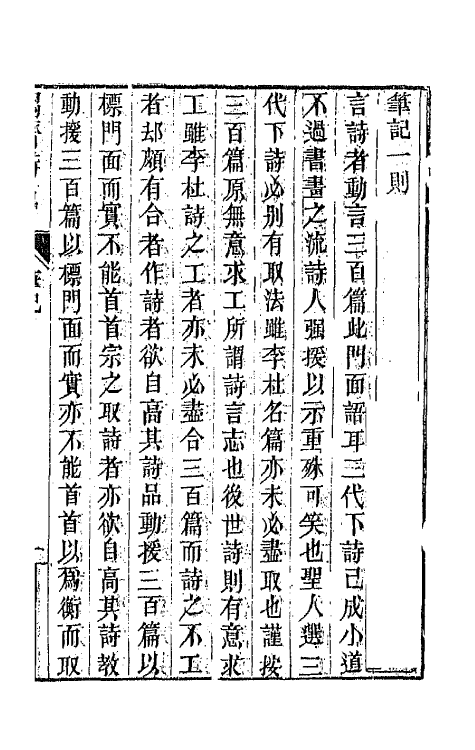 筆記一則
言詩者動言三百篇此門面語耳三代下詩已成小道
不過書畫之流詩人强援以示重殊可笑也聖人選三
代下詩必別有取法雖李杜名篇亦未必盡取也謹按
三百篇原無意求工所謂詩言志也後世詩則有意求
工雖李杜詩之工者亦未必盡合三百篇而詩之不工
者却頗有合者作詩者欲自高其詩品動援三百篇以
標門面而實不能首首宗之取詩者亦欲自高其詩教
動援三百篇以標門面而實亦不能首首以爲衡而取